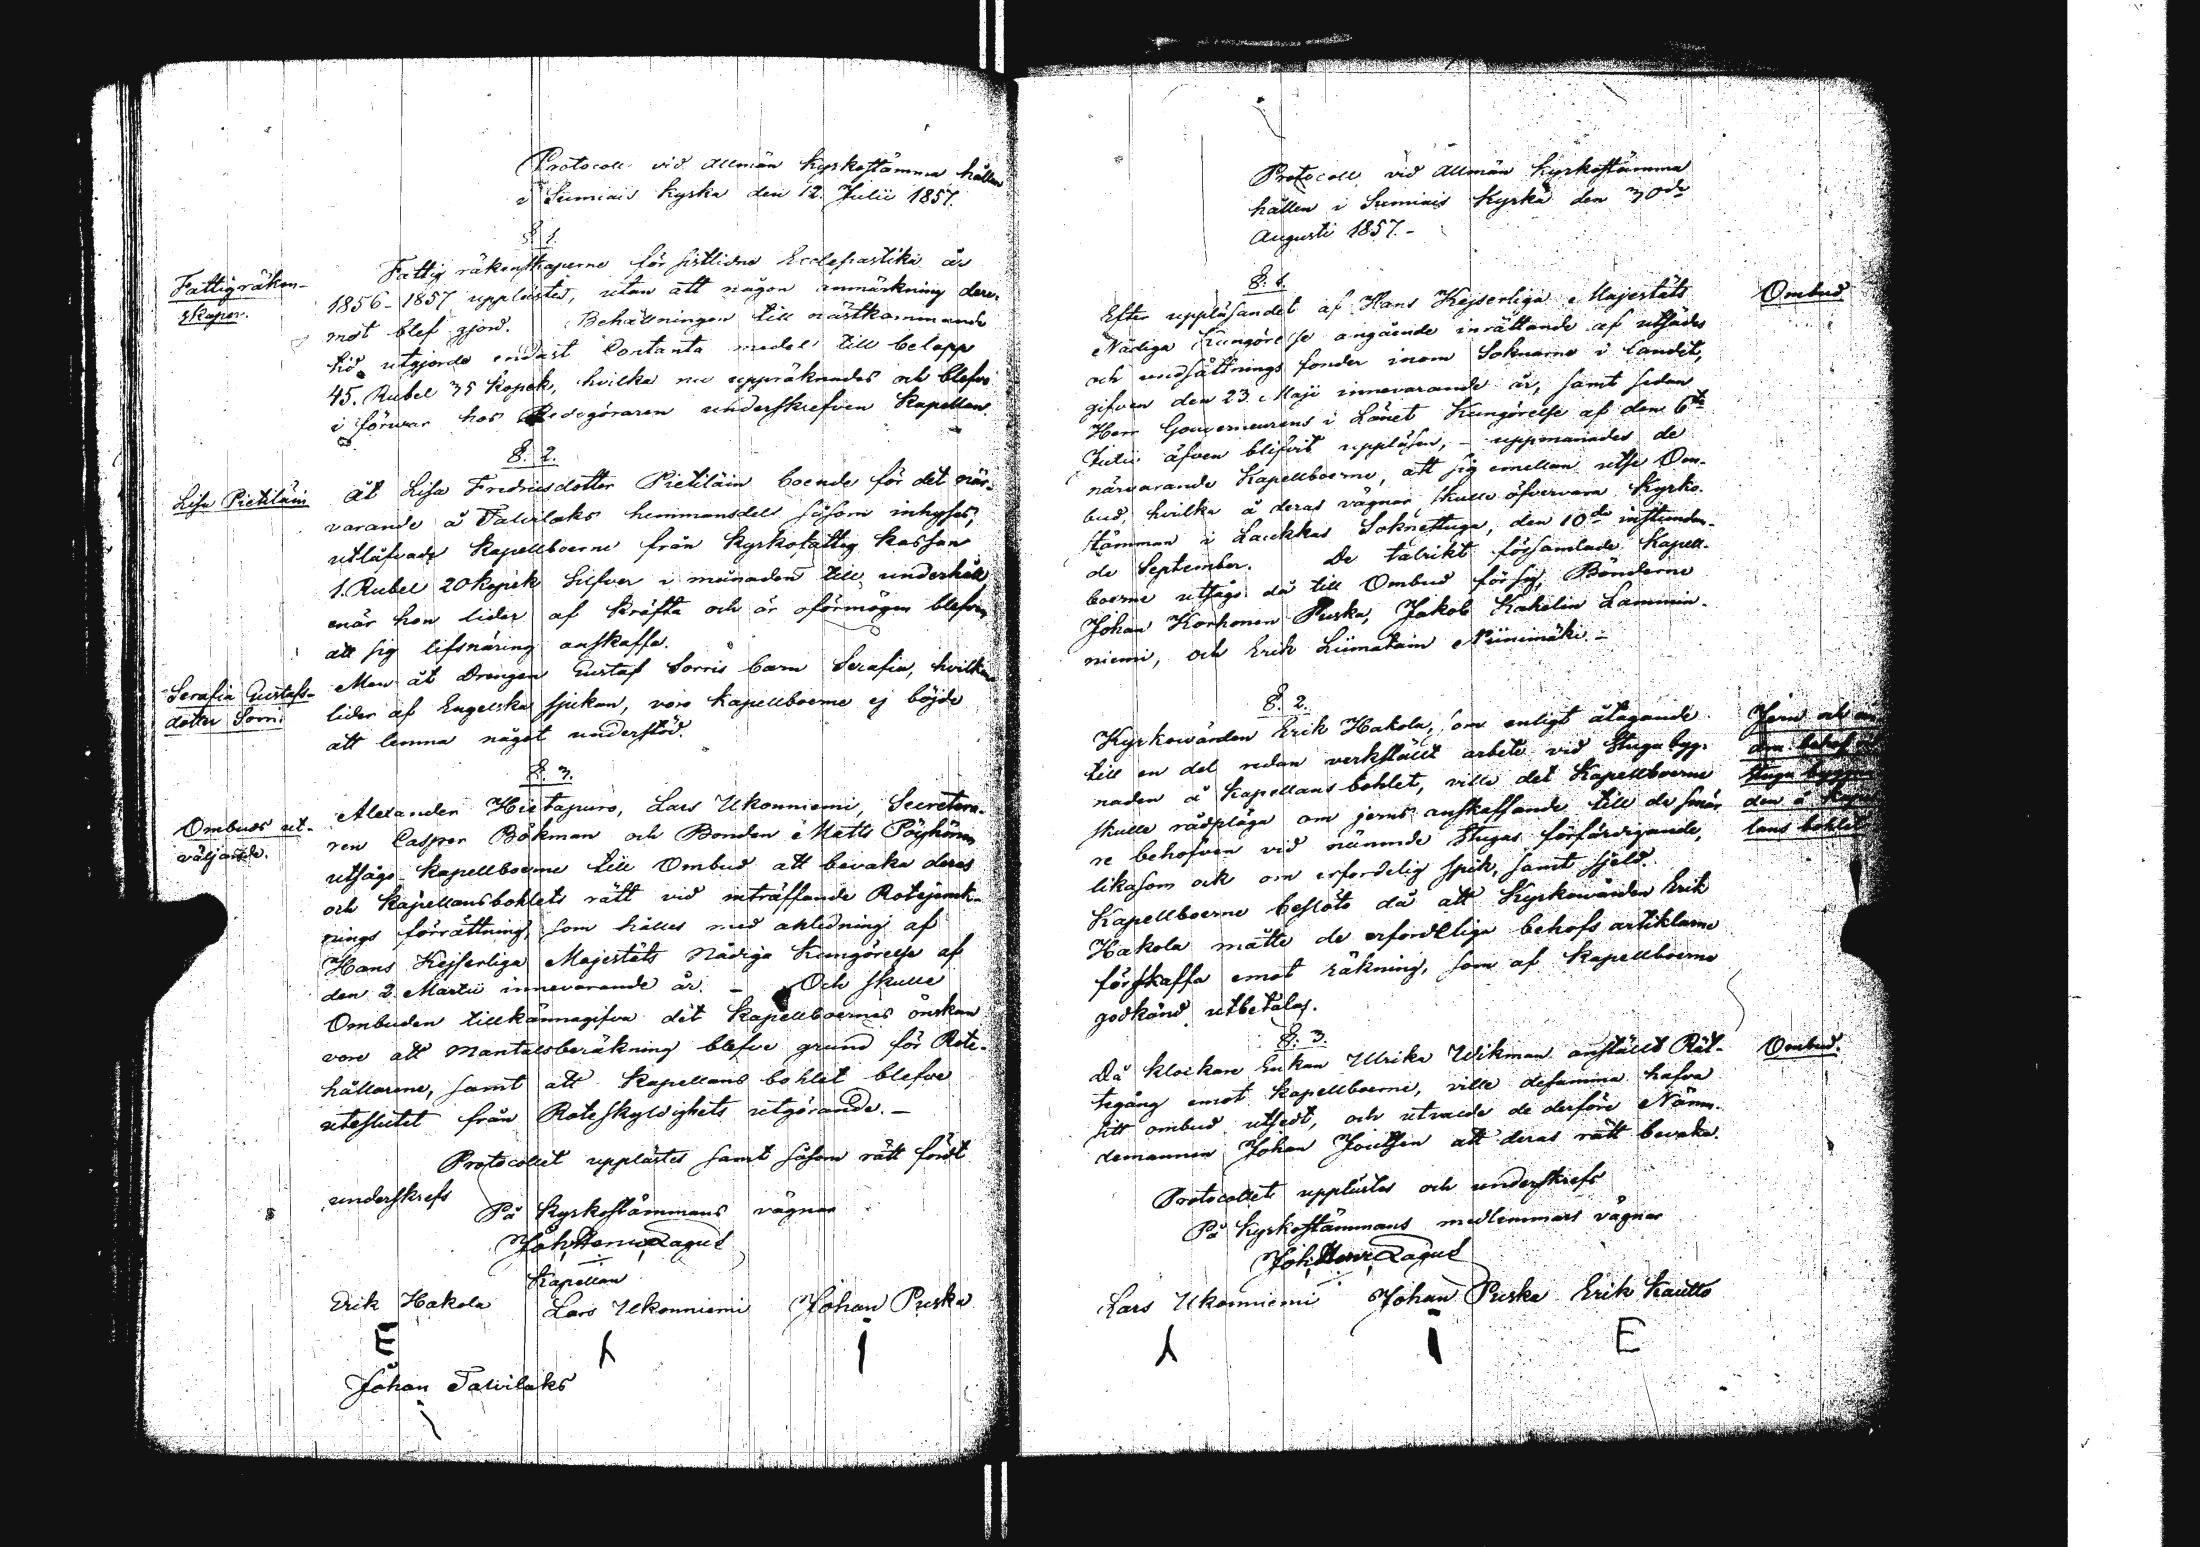 Protocoll vid allmän Kyrkostämma hållen
i Sumiais Kyrka den 12. Julii 1857.
§. 1.
Fattigräken-
skaper.
Fattig räkenskaperne för sistlidne Ecclesiastika år
1856-1857 upplästes, utan att någon anmärkning dere-
mot blef gjord. Behållningen till nästkommande
tid utgjorde endast Contanta medel till belopp
45. Rubel 35 Kopek, hvilka nu uppräknades och blefvo
i förvar hos Redogöraren underskrefven Kapellan.
§. 2.
Lisa Pietiläin
Åt Lisa Fredricsdotter Pietiläin boende för det när-
varande å Talvilaks hemmansdel såsom inhyses,
utläfvade Kapellboerne från Kyrkofattig kassan
1. Rubel 20 Kopek Silfver i månaden till underhåll,
enär hon lider af Kräfta och är oförmögen blefven
att sig lifsnäring anskaffa.
Serafia Gustafs-
dotter Sorri
Men åt Drengen Gustaf Sorris barn Serafia, hvilken
lider af Engelska sjukan, voro Kapellboerne ej böjde
att lemna något understöd.
§. 3.
Ombuds ut-
väljande.
Alexander Hietapuro, Lars Ukonniemi, Secretera-
ren Casper Bökman och Bonden Matts Pöyhönen
utsågo Kapellboerne till Ombud att bevaka deras
och Kapellansbohlets rätt vid inträffande Rotejemk-
nings förrättning, som hålles med anledning af
Hans Kejserliga Majestäts Nådiga Kungörelse af
den 2 Martii innevarande år. - Och skulle
Ombuden tillkännagifva det Kapellboernes önskan
vore att Mantalsberäkning blefve grund för Rote-
hållarene, samt att Kapellans bohlet blefve
uteslutet från Roteskyldighets utgörande. -
Protocollet upplästes samt såsom rätt fördt
underskrefs
På Kyrkostämmans vägnar
Joh. Henr. Lagus
Kapellan
Erik Hakola Lars Ukonniemi Johan Puska
E L I
Johan Talvilaks
Protocoll vid allmän Kyrkostämma
hållen i Sumiais Kyrka den 30de
Augusti 1857. -
§. 1.
Ombud.
Efter uppläsandet af Hans Kejserliga Majestäts
Nådiga Kungörelse angående inrättande af utsädes
och undsättnings fonder inom Soknarne i landet,
gifven den 23 Maji innevarande år, samt sedan
Herr Gouverneurens i Länet Kungörelse af den 6te
Julii äfven blifvit uppläsen, - uppmanades de
närvarande Kapellboerne, att sig emellan utse Om-
bud, hvilka å deras vägnar skulle öfvervara Kyrko-
stämman i Laukkas Soknestuga, den 10de instundan-
de September. De talrikt församlade Kapell-
boerne utsågo då till Ombud för sig, Bönderne
Johan Korhonen Puska, Jakob Kakelin Lammin-
niemi, och Erik Liimatain Niinimäki. -
§. 2.
Jern och an
dra behof
Stuga byggna
den å Kapel
lans bohlet
Kyrkovärden Erik Hakola, som enligt åtagande
till en del redan verkställt arbete vid Stuga byg-
naden å Kapellans bohlet, ville det Kapellboerne
skulle rådpläga om jerns anskaffande till de smär-
re behofven vid nämnde Stugas förfärdigande,
likasom ock om erforderlig spik, samt spjeld.
Kapellboerne beslöto då att Kyrkovärden Erik
Hakola måtte de erforderliga behofs artiklarne
förskaffa emot räkning, som af Kapellboerne
godkänd utbetalas.
§. 3.
Ombud.
Då Klockare Enkan Ulrika Wikman anställt Rät-
tegång emot Kapellboerne, ville desamma hafva
sitt ombud utsedt, och utvalde de derföre Nämn-
demannen Johan Joutsen att deras rätt bevaka.
Protocollet upplästes och underskrefs
På Kyrkostämmans medlemmars vägnar
Joh. Henr. Lagus
Lars Ukonniemi Johan Puska Erik Kautto
L I E